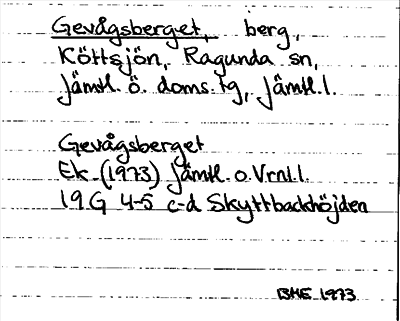 Gevågsberget, berg,
Köttsjön, Ragunda sn,
Jämtl. ö. doms. tg, Jämtl. l.
Gevågsberget
Ek. (1973) Jämtl. o. Vrnl. l.
19 G 4-5 c-d Skyttbackhöjden
BHE 1973